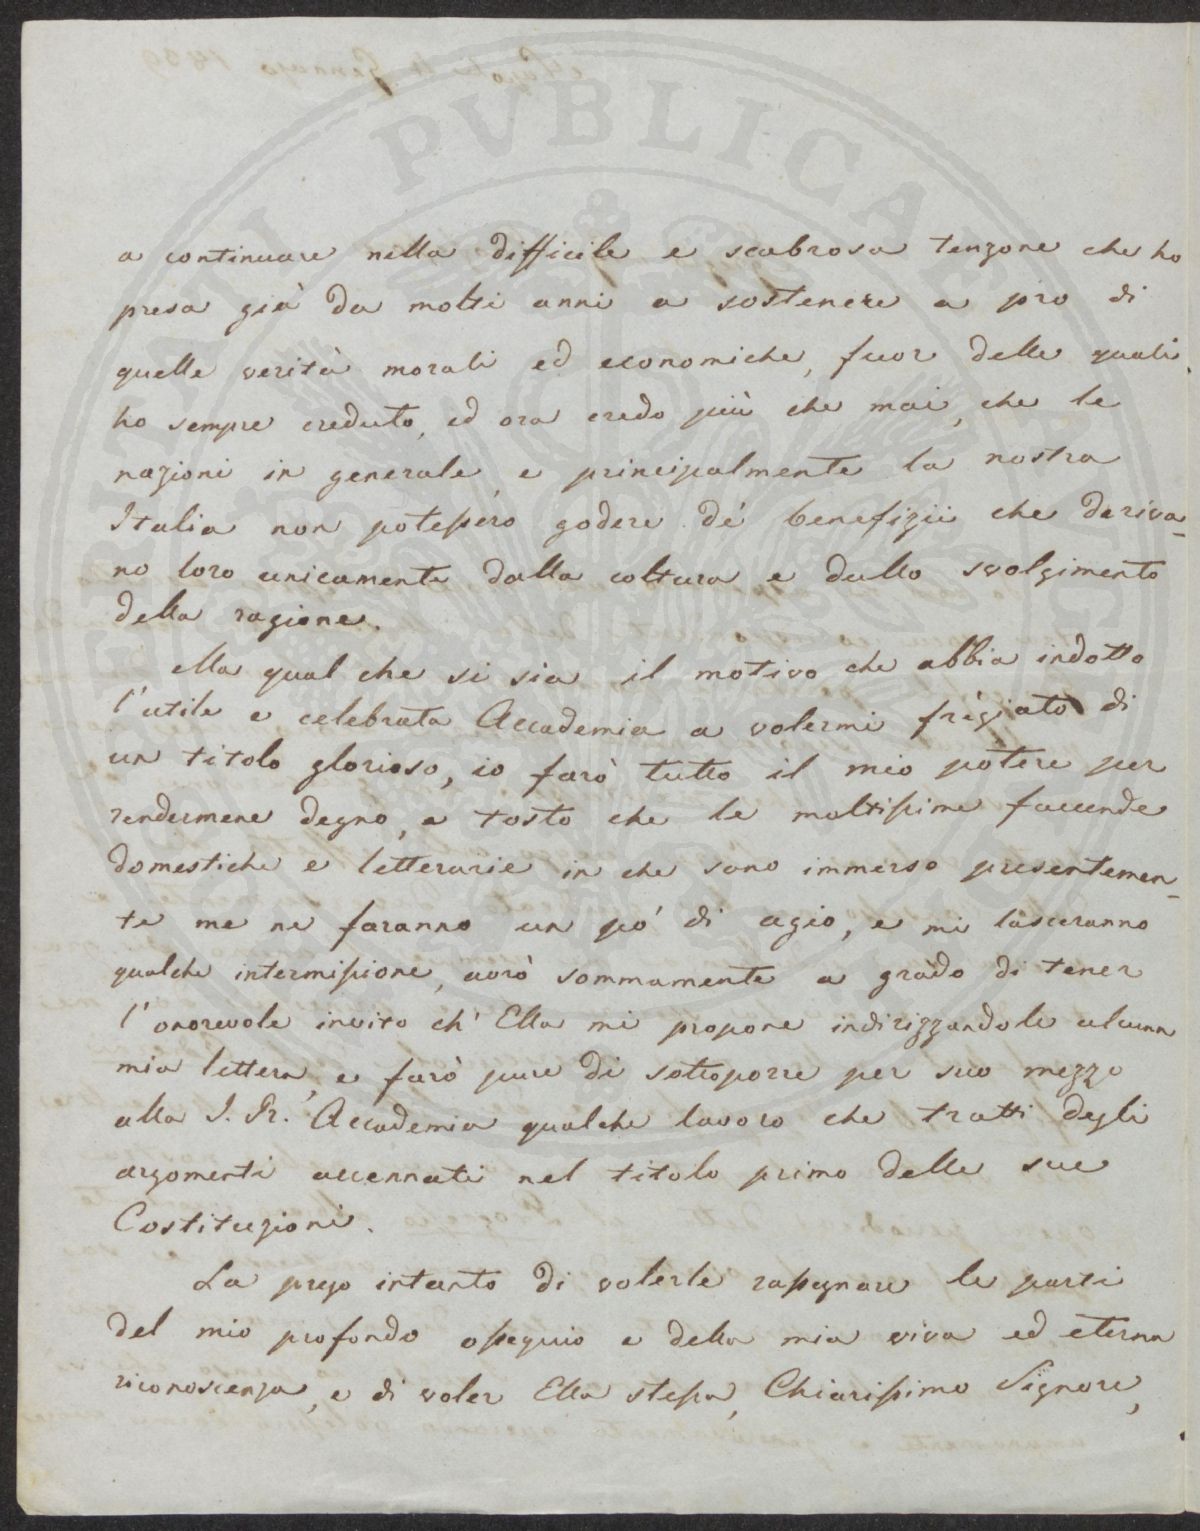 a continuare nella difficile e scabrosa tenzone che ho
presa già da molti anni a sostenere a pro di
quelle verità morali ed economiche, fuor delle quali
ho sempre creduto, ed ora credo più che mai, che le
nazioni in generale, e principalmente la nostra
Italia non potessero godere de' benefizii che deriva-
no loro unicamente dalla coltura e dallo svolgimento
della ragione.
Ma qual che si sia il motivo che abbia indotto
l'utile e celebrata Accademia a volermi fregiato di
un titolo glorioso, io farò tutto il mio potere per
rendermene degno, e tosto che le moltissime faccende
domestiche e letterarie in che sono immerso presentemen-
te me ne faranno un po' di agio, e mi lasceranno
qualche intermissione, avrò sommamente a grado di tener
l'onorevole invito ch' Ella mi propone indirizzandole alcuna
mia lettera, e farò pure di sottoporre per suo mezzo
alla I. R. Accademia qualche lavoro che tratti degli
argomenti accennati nel titolo primo delle sue
Costituzioni.
La prego intanto di volerle rassegnare le parti
del mio profondo ossequio e della mia viva ed eterna
riconoscenza, e di voler Ella stessa, Chiarissimo Signore,